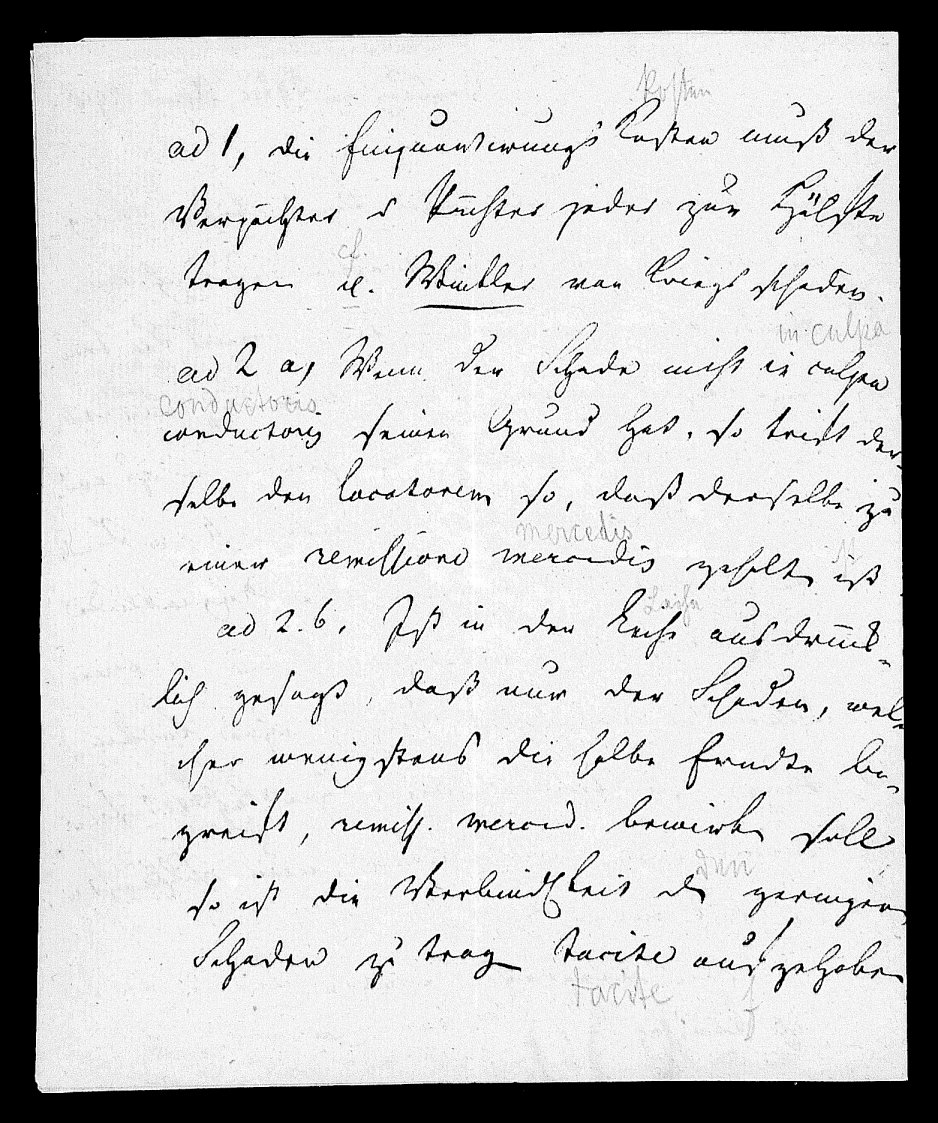 Kosten
ad 1, die Einquartirungs Kosten muß der
Verpächter u Pächter jeder zur Hälfte
cf.
tragen cf. Winkler von Kriegsschaden.
in culpa
ad 2 a, Wenn der Schade nicht in culpa
conductoris
conductoris seinen Grund hat, so trift der-
selbe den locatorem so, daß derselbe zu
mercedis
einer remissione mercedis gehalten ist
Lehre
ad 2. b, Ist in der ausdrück-
lich gesagt, daß nur der Schaden, wel-
cher wenigstens die halbe Erndte be-
greift, remiss. merced. bewirken soll
den
so ist die Verbindlkeit den geringern
Schaden zu tragen tacite aufgehoben
tacite f